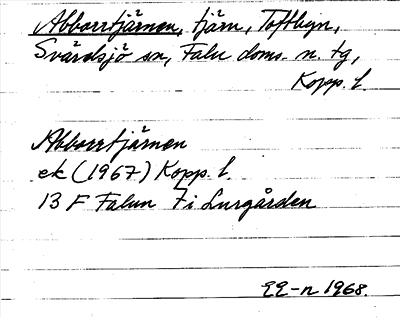 Abborrtjärnen, tjärn, Toftbyn,
Svärdsjö sn, Falu doms. n. tg,
Kopp. l.
Abborrtjärnen
ek (1967) Kopp. l.
13 F Falun 7 i Lurgården
1968.